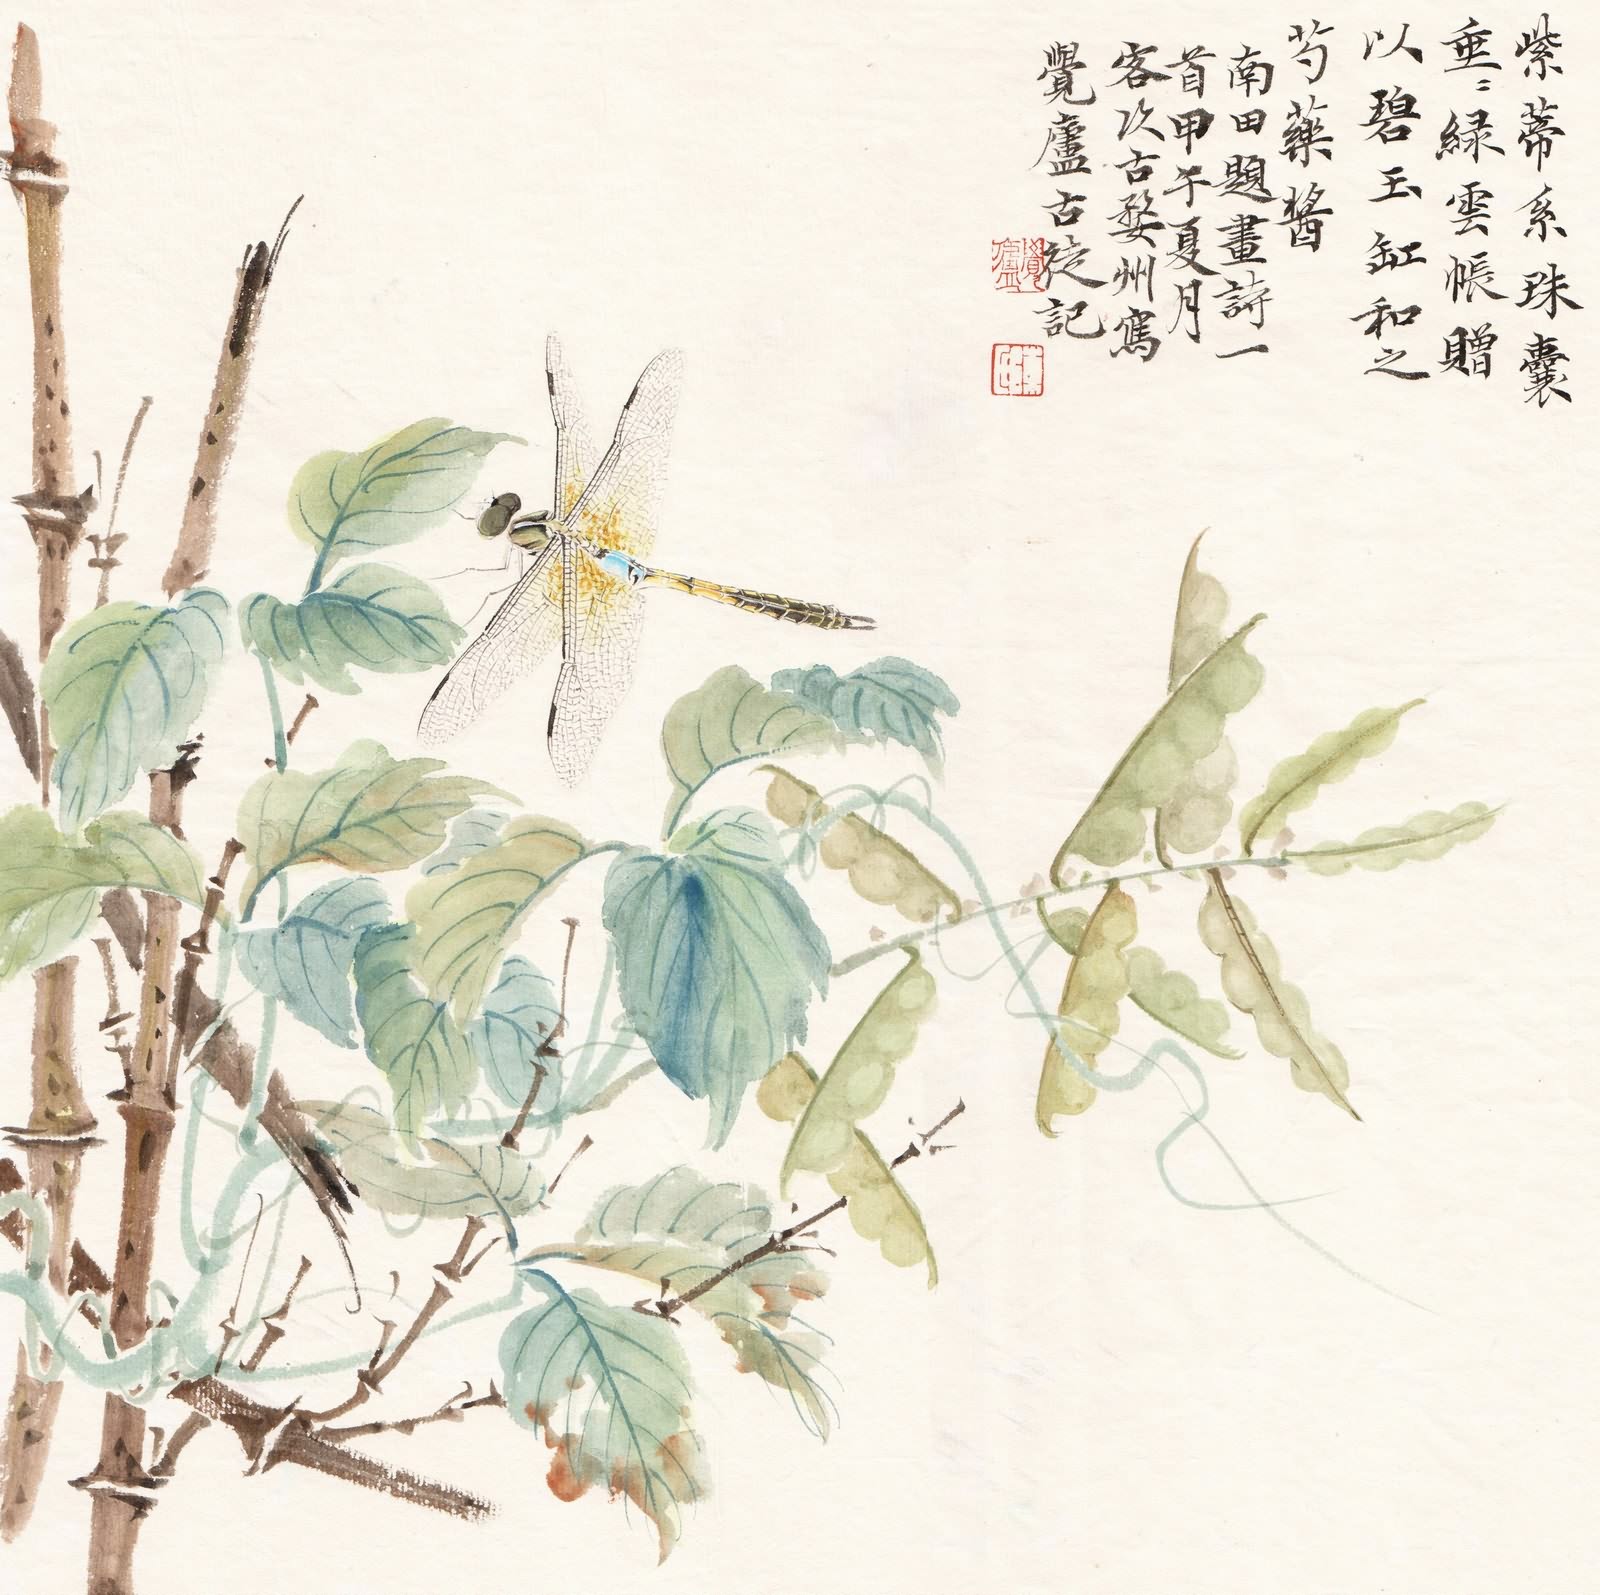 紫蒂系珠囊
垂垂綠雲帳贈
以碧玉缸和之
芍藥醬
南田題畫詩一
首甲午夏月
客次古婺州寫
覺廬古徒記
覺廬